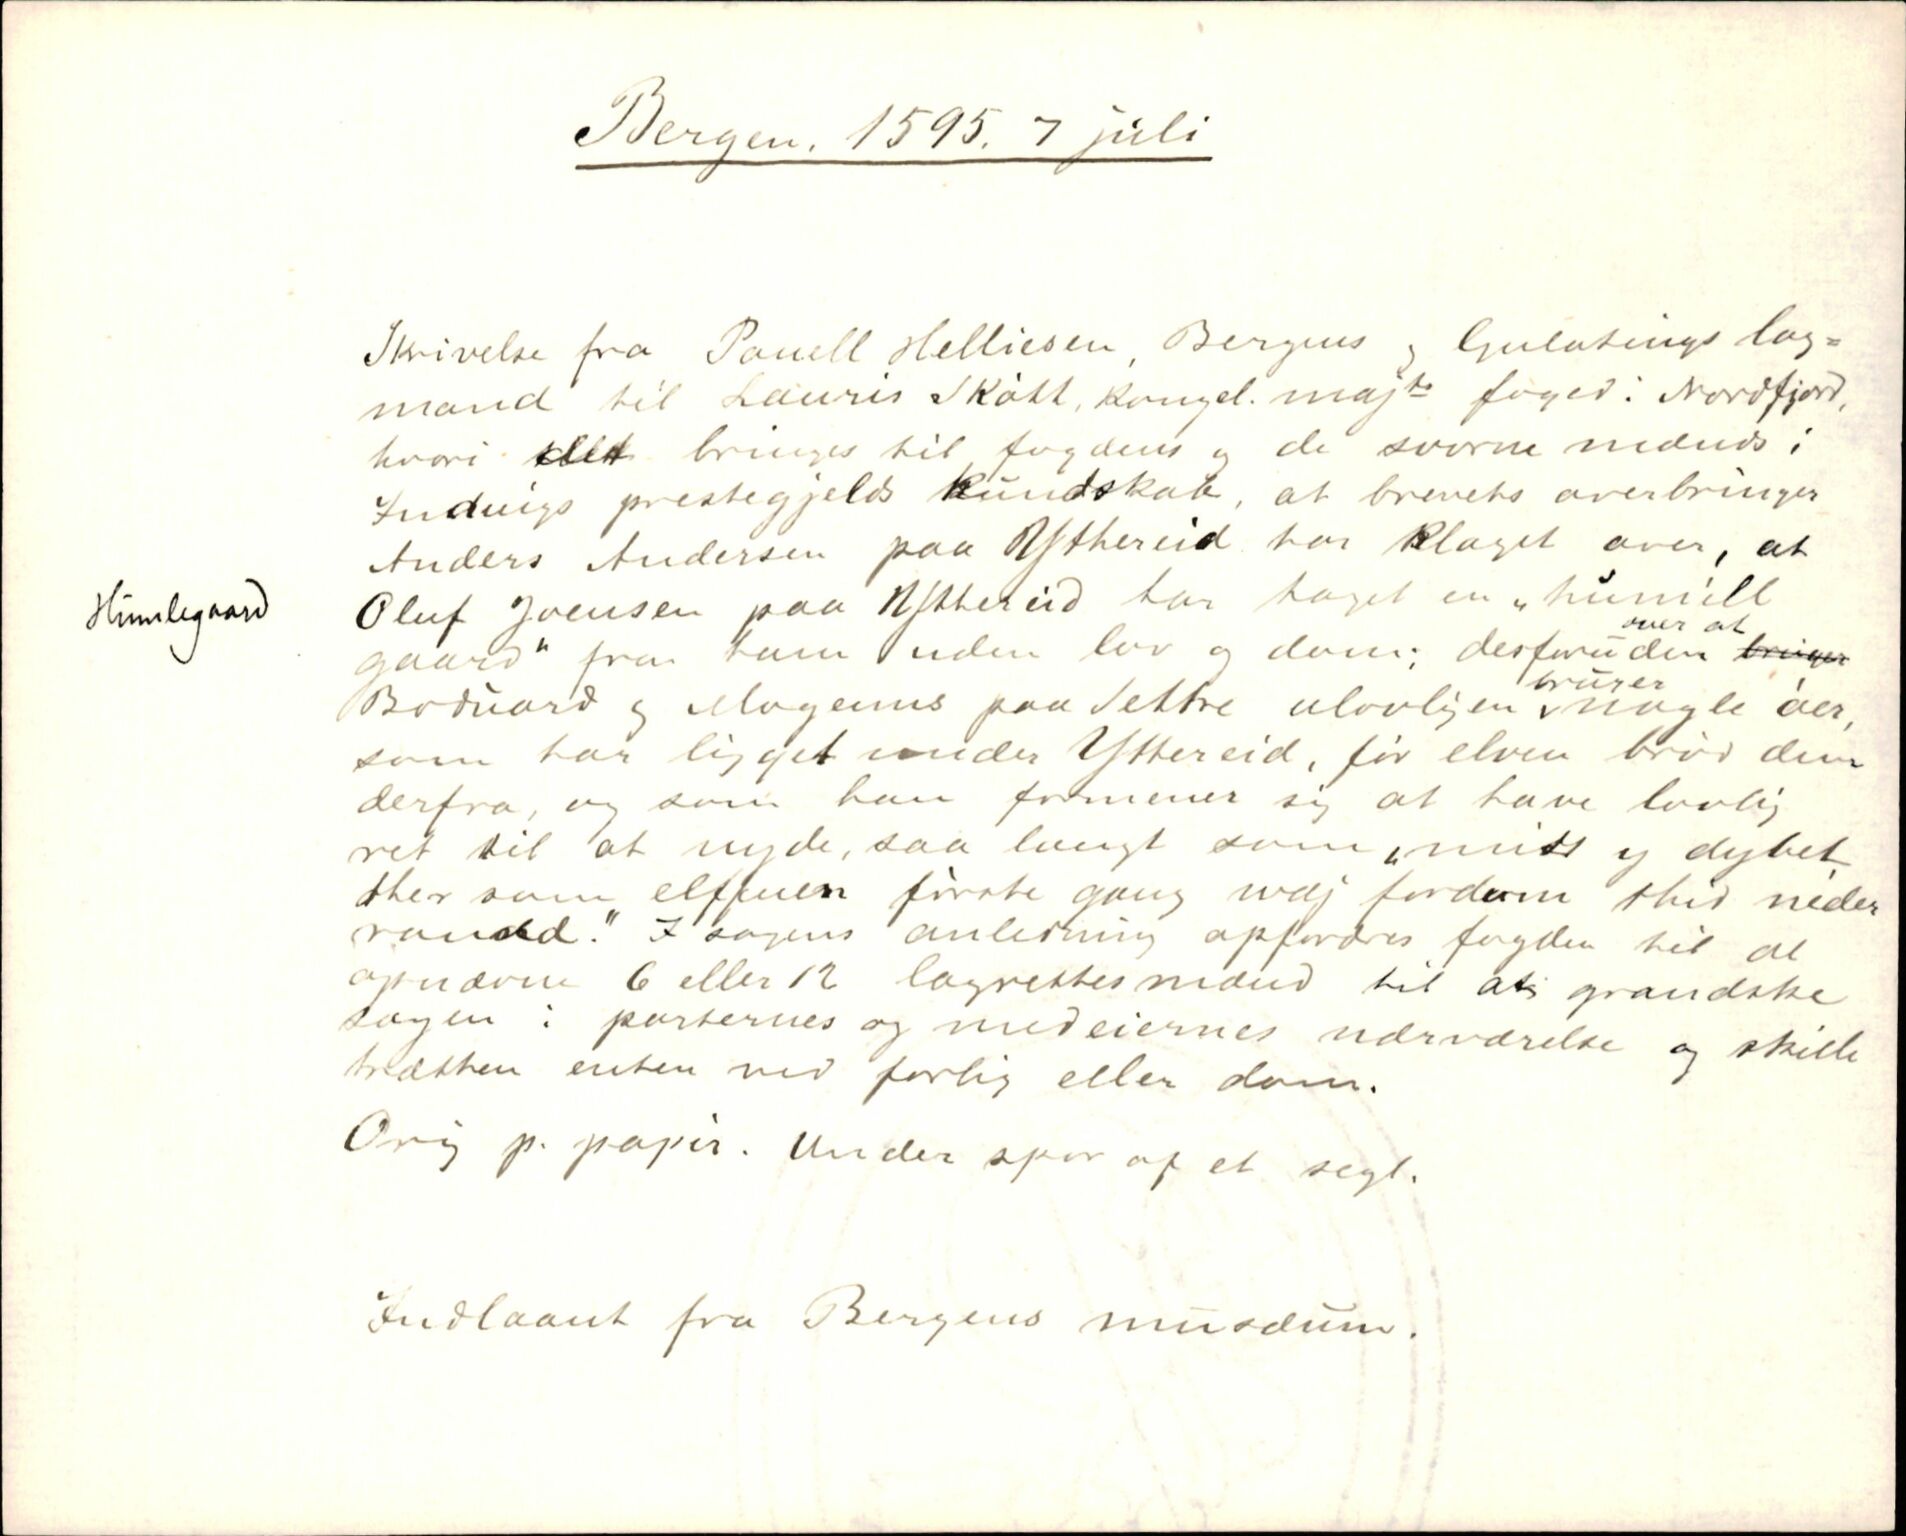 Bergen. 1595. 7 juli
Skrivelse fra Pouell Helliesen, Bergens og Gulatings lag=
mand til Lauris Skøtt, kongel. maj<sup>ts</sup> foged i Nordfjord,
hvori det bringes til fogdens og de svorne mænds i
Indvigs prestegjelds kundskab, at brevets overbringer
Anders Andersen paa Ythereid har klaget over, at
Himlegaard
Oluf Joensen paa Ythereid har taget en „humill
gaard" fra ham uden lov og dom; desforuden ~~bruger~~ over at
Boduard og Mogenns paa Settre ulovligen bruger nogle øer,
som har ligget under Yttereid, før elven brød dem
derfra, og som han formener sig at have lovlig
ret til at nyde, saa langt som „mitt y dybet
ther som elffuenn første gang waj fordom thid neder
randd." I sagens anledning opfordres fogden til at
opnævne 6 eller 12 lagrettesmænd til at grandske
sagen i parternes og medeiernes nærværelse og skille
trætten enten ved forlig eller dom.
Orig p. papir. Under spor af et segl.
Indlaant fra Bergens musæum.